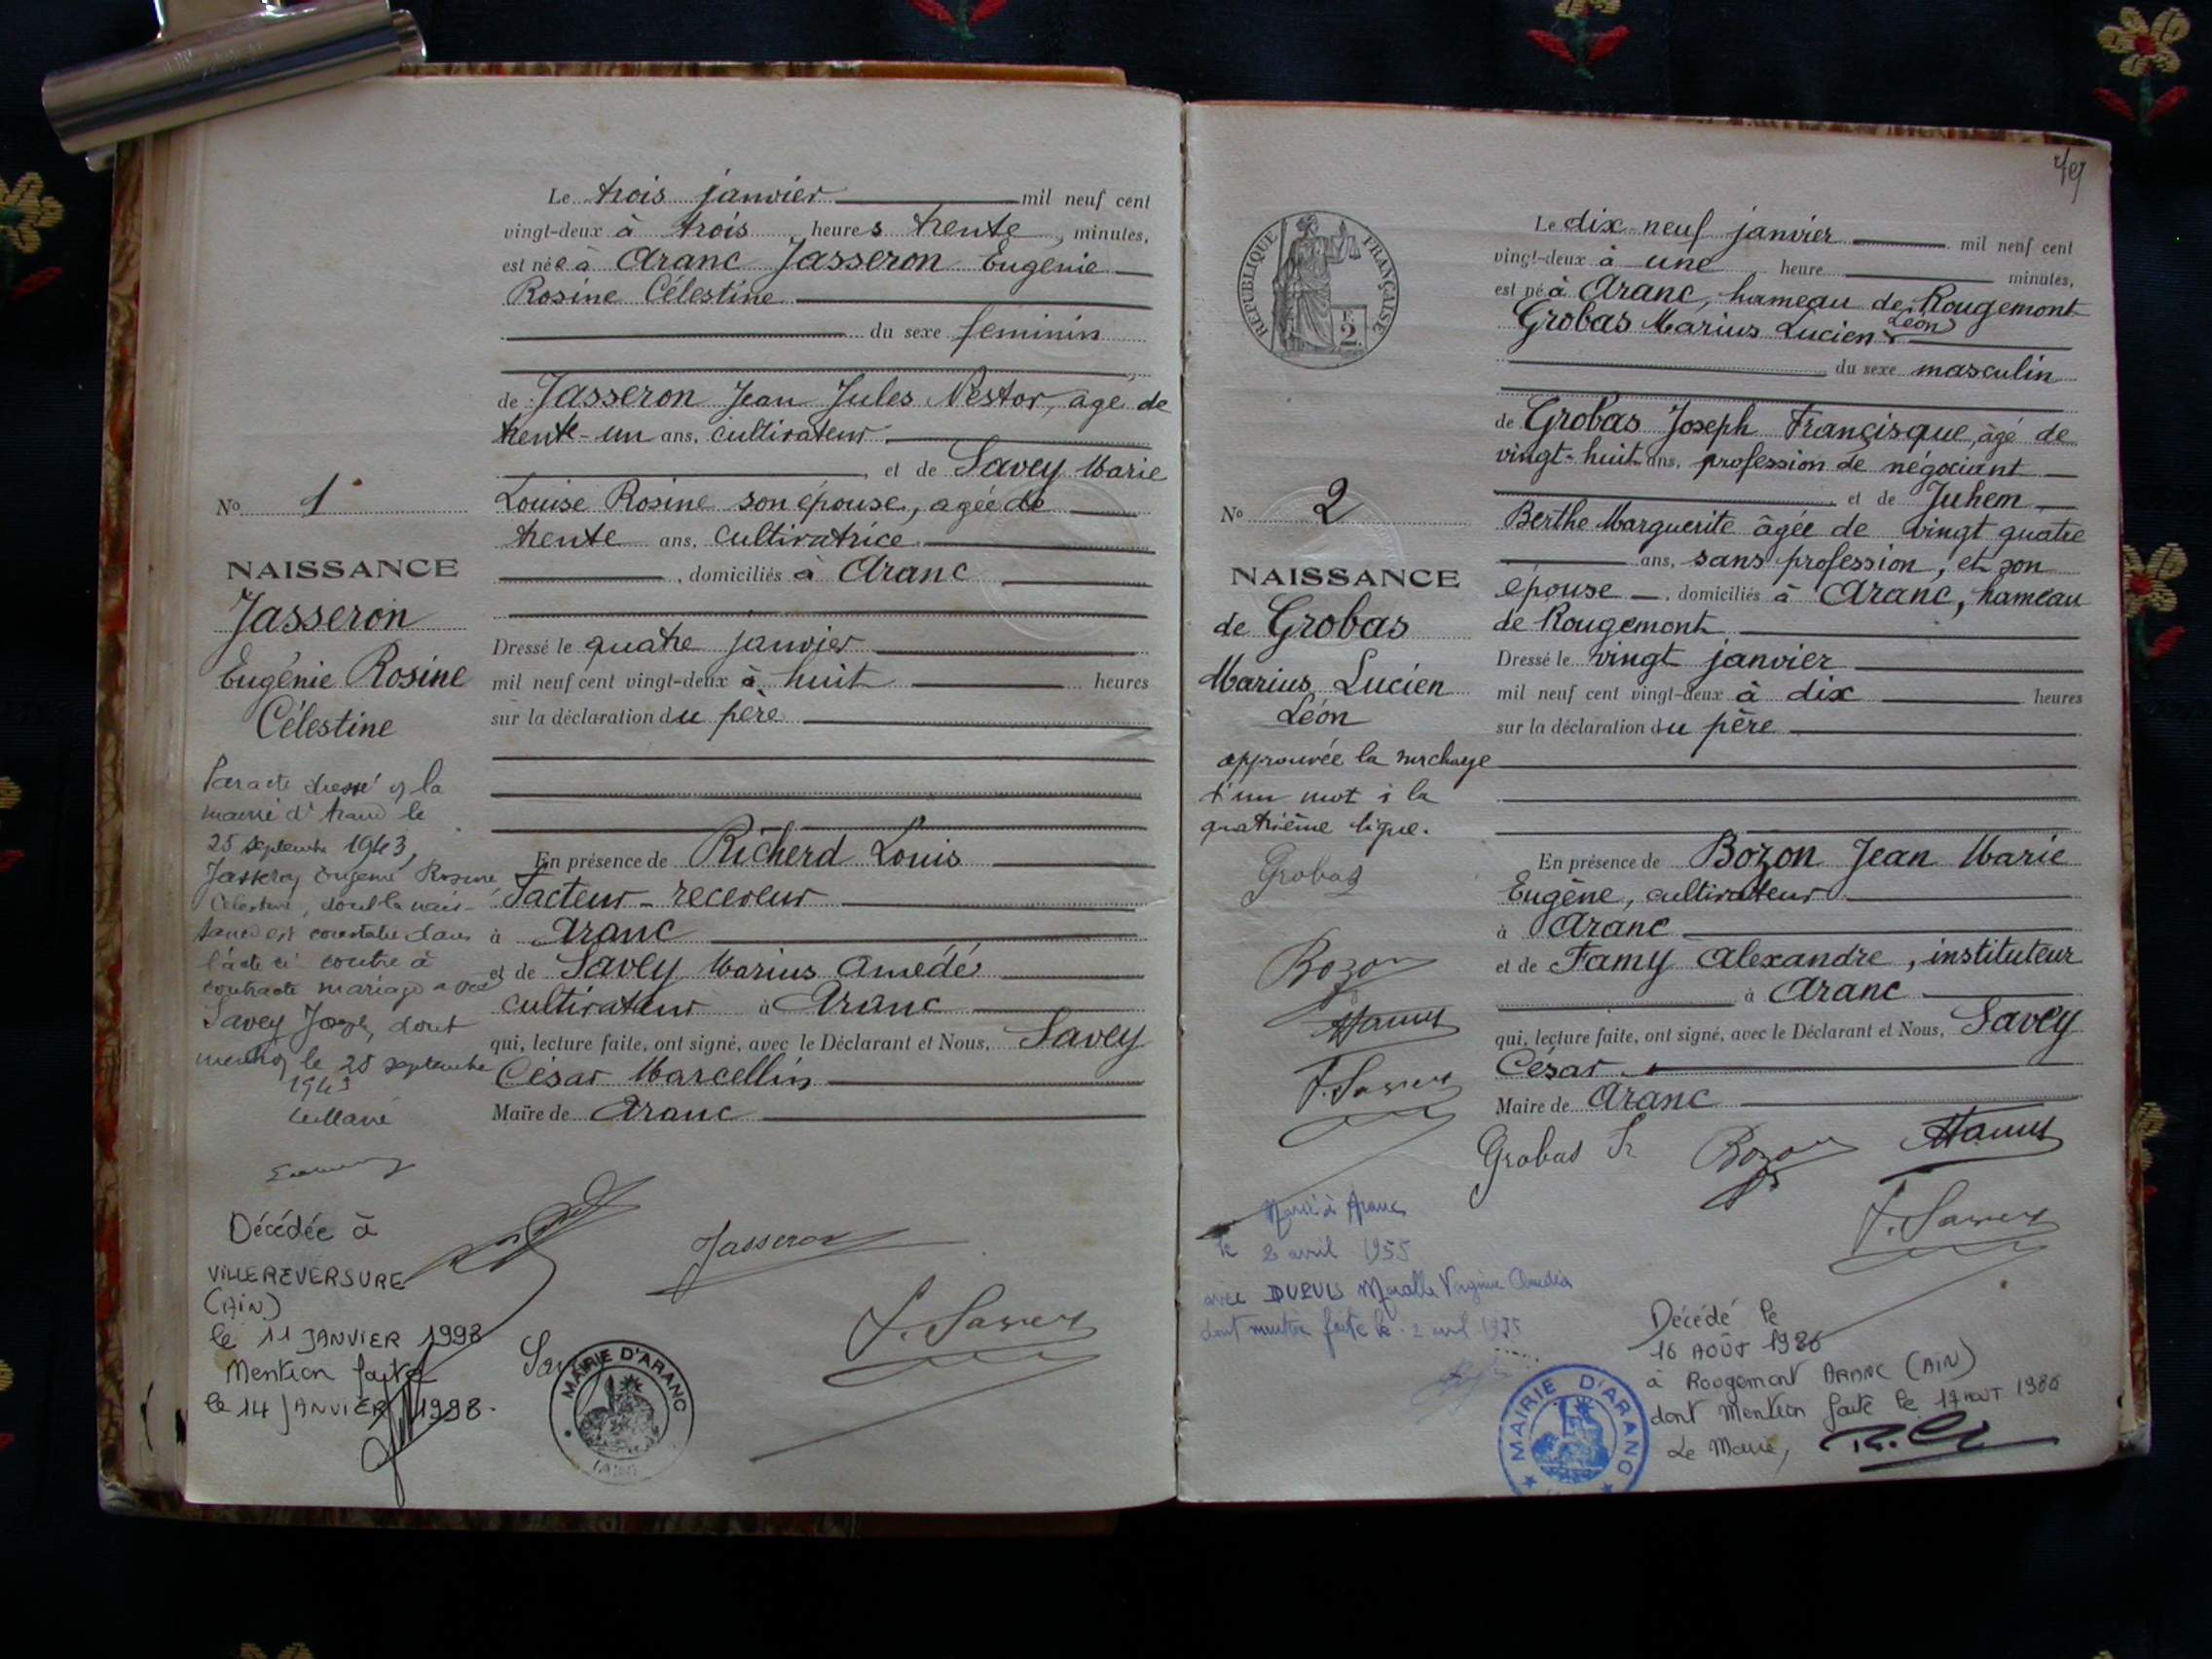 Le trois janvier mil neuf cent
vingt-deux à trois heures trente, minutes,
est née à Aranc Jasseron Eugénie
Rosine Célestine
du sexe feminin
de Jasseron Jean Jules Nestor, âgé de
trente-un ans, cultivateur
et de Savey Marie
Louise Rosine son épouse, agée de
trente ans, cultivatrice
, domiciliés à Aranc
Dressé le quatre janvier
mil neuf cent vingt-deux à huit heures
sur la déclaration du père
En présence de Richerd Louis
facteur-receveur
à Aranc
et de Savey Marius Amédé
cultivateur à Aranc
qui, lecture faite, ont signé, avec le Déclarant et Nous, Savey
César Marcellin
Maire de Aranc
No 1
NAISSANCE
Jasseron
Eugénie Rosine
Célestine
Par acte dressé à la
mairie d'Aranc le
25 septembre 1943,
Jasseron Eugénie Rosine
Célestine, dont la nais-
sance est constatée dans
l'acte ci contre à
contracté mariage avec
Savey Joseph, dont
mention le 25 septembre
1943
Le Maire
Décédée à
VILLEREVERSURE
(AIN)
le 11 JANVIER 1998
Mention faite
le 14 JANVIER 1998.
Jasseron
F. Savey
MAIRIE D'ARANC
RÉPUBLIQUE FRANÇAISE
2
Le dix-neuf janvier mil neuf cent
vingt-deux à une heure minutes,
est né à Aranc, hameau de Rougemont
Grobas Marius Lucien Léon
du sexe masculin
de Grobas Joseph Françisque, âgé de
vingt-huit ans, profession de négociant
et de Juhem
Berthe Marguerite âgée de vingt quatre
ans, sans profession, et son
épouse, domiciliés à Aranc, hameau
de Rougemont
Dressé le vingt janvier
mil neuf cent vingt-deux à dix heures
sur la déclaration du père
En présence de Bozon Jean Marie
Eugène, cultivateur
à Aranc
et de Famy Alexandre, instituteur
à Aranc
qui, lecture faite, ont signé, avec le Déclarant et Nous, Savey
César
Maire de Aranc
No 2
NAISSANCE
de Grobas
Marius Lucien
Léon
approuvée la surcharge
d'un mot à la
quatrième ligne.
Grobas
Bozon
AFamy
F. Savey
Grobas Fr
Bozon
AFamy
F. Savey
Marié à Aranc
le 2 avril 1955
avec DUPUIS Virginie Claudia
dont mention faite le 2 avril 1955
MAIRIE D'ARANC
Décédé le
16 AOÛT 1986
à Rougemont ARANC (AIN)
dont Mention faite le 17 AOUT 1986
Le Maire,